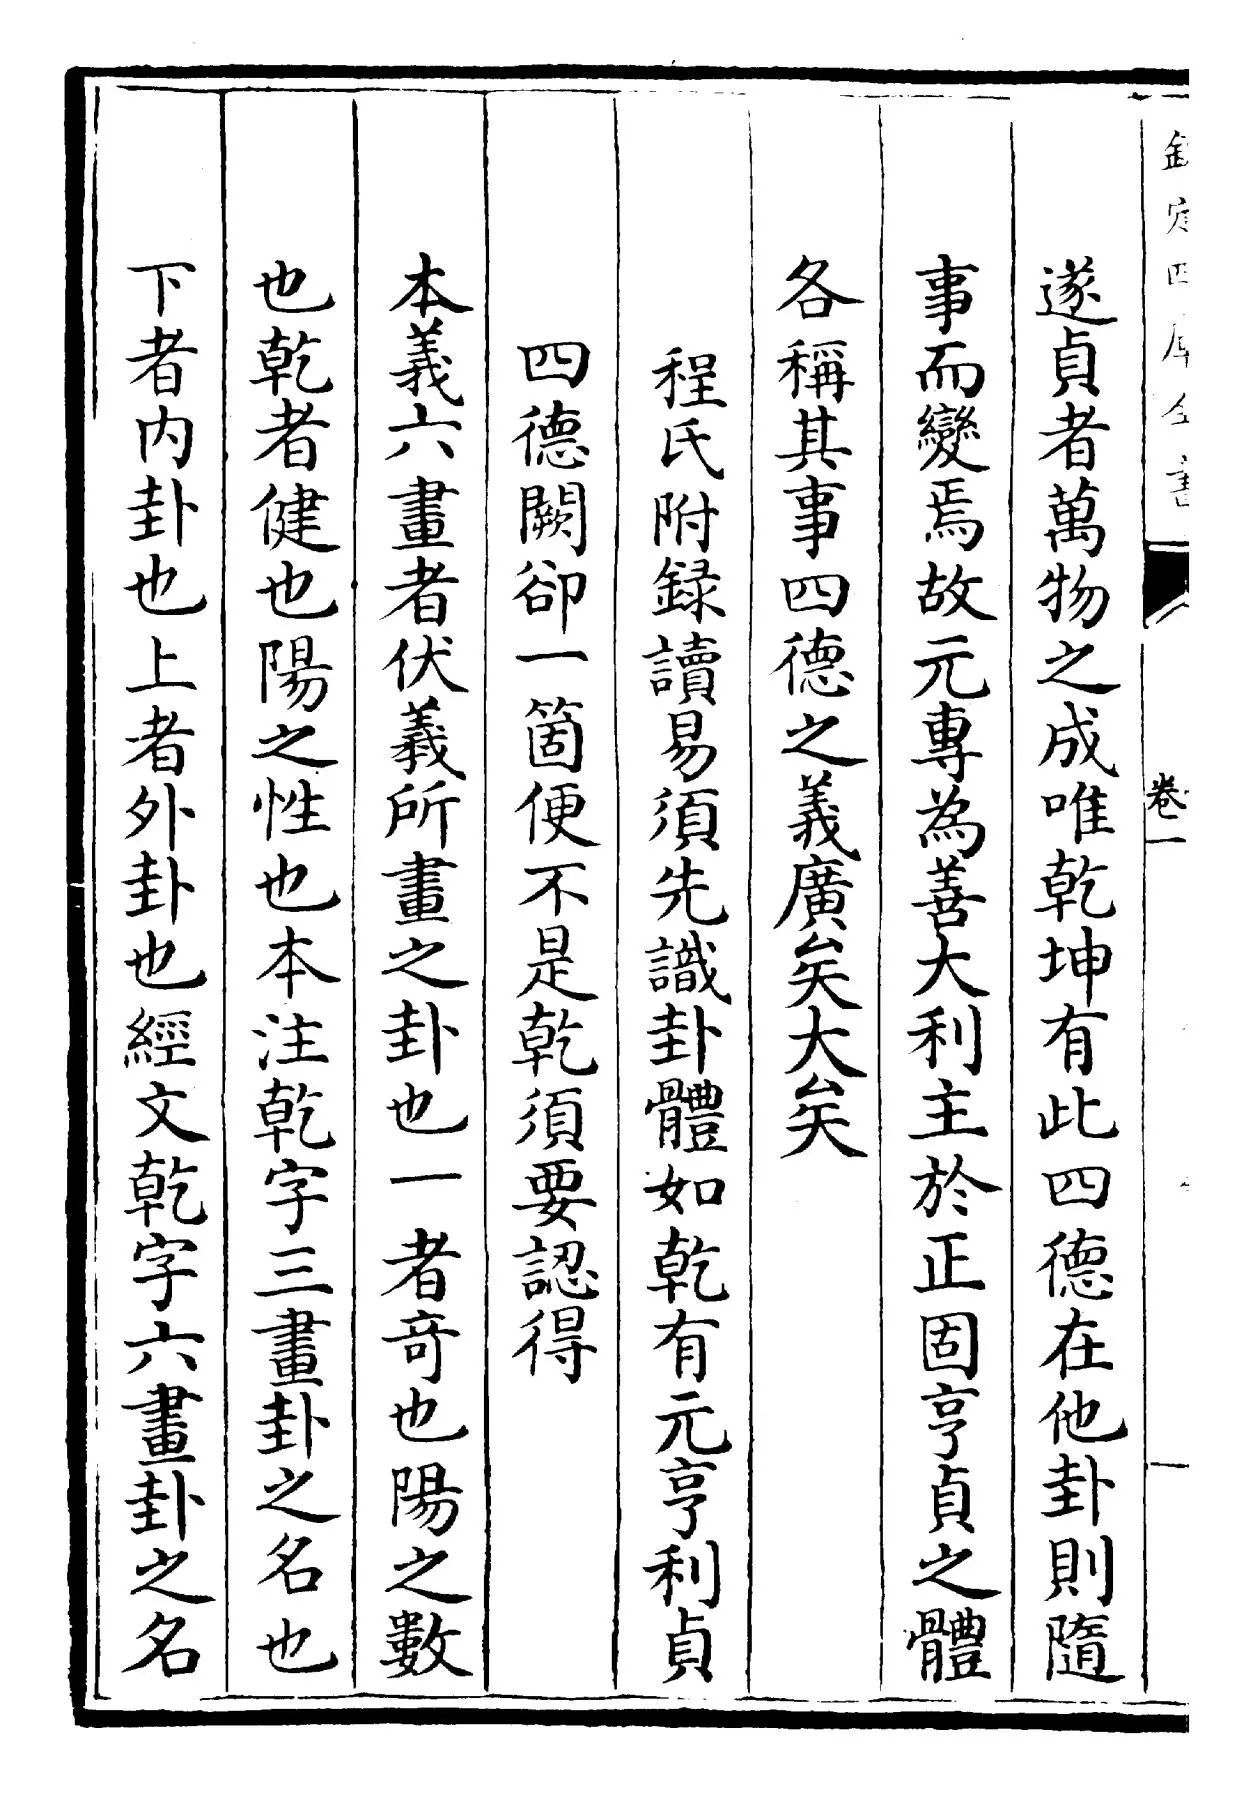 欽定四庫全書
卷一
遂貞者萬物之成唯乾坤有此四德在他卦則隨
事而變焉故元專為善大利主於正固亨貞之體
各稱其事四德之義廣矣大矣
程氏附録讀易須先識卦體如乾有元亨利貞
四德闕卻一箇便不是乾須要認得
本義六畫者伏羲所畫之卦也一者奇也陽之數
也乾者健也陽之性也本注乾字三畫卦之名也
下者内卦也上者外卦也經文乾字六畫卦之名